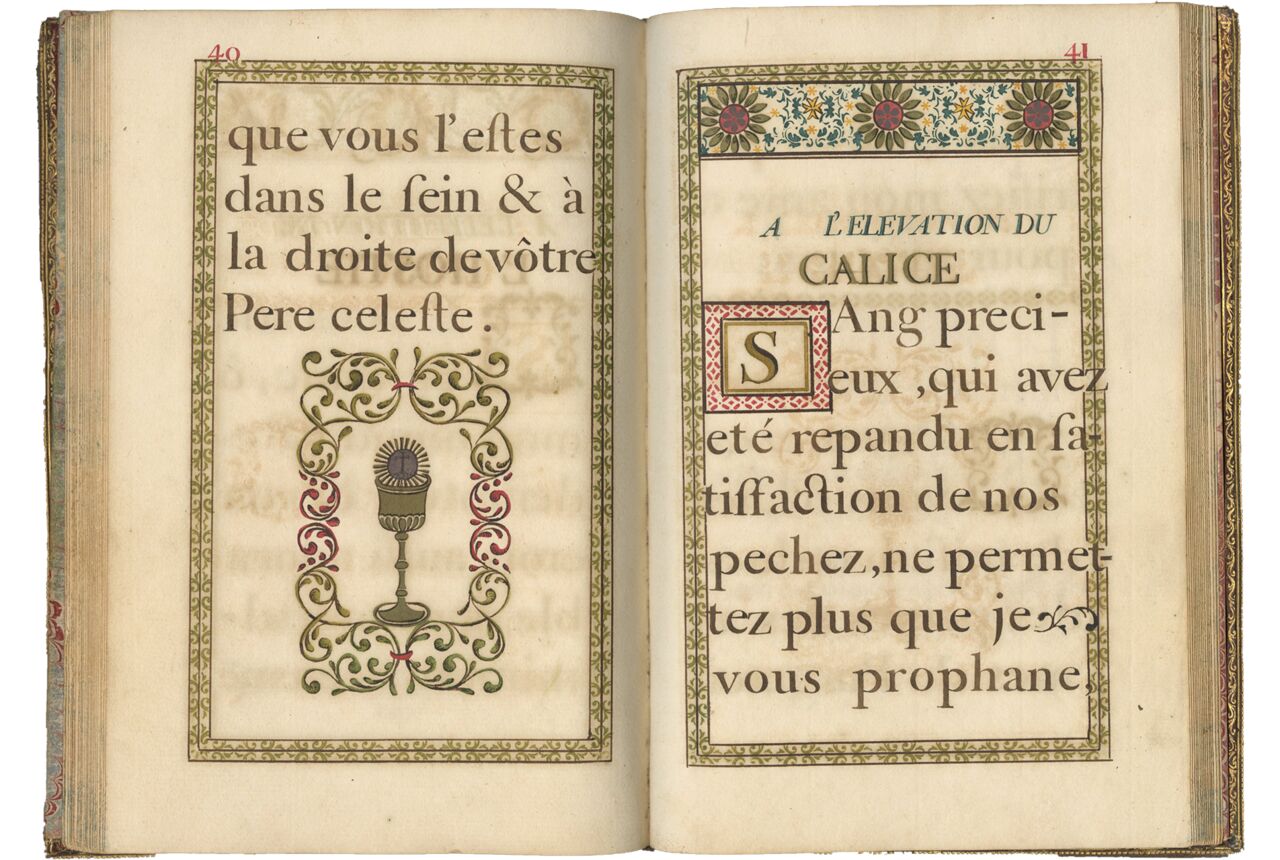 40
que vous l'eſtes
dans le ſein & à
la droite de vôtre
Pere celeſte.
41
A L'ELEVATION DU
CALICE
SAng preci-
eux, qui avez
eté repandu en ſa-
tiſfaction de nos
pechez, ne permet-
tez plus que je
vous prophane,